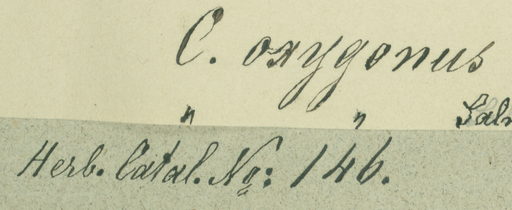 C. oxygonus
" " Salm
Herb. Catal. No: 146.